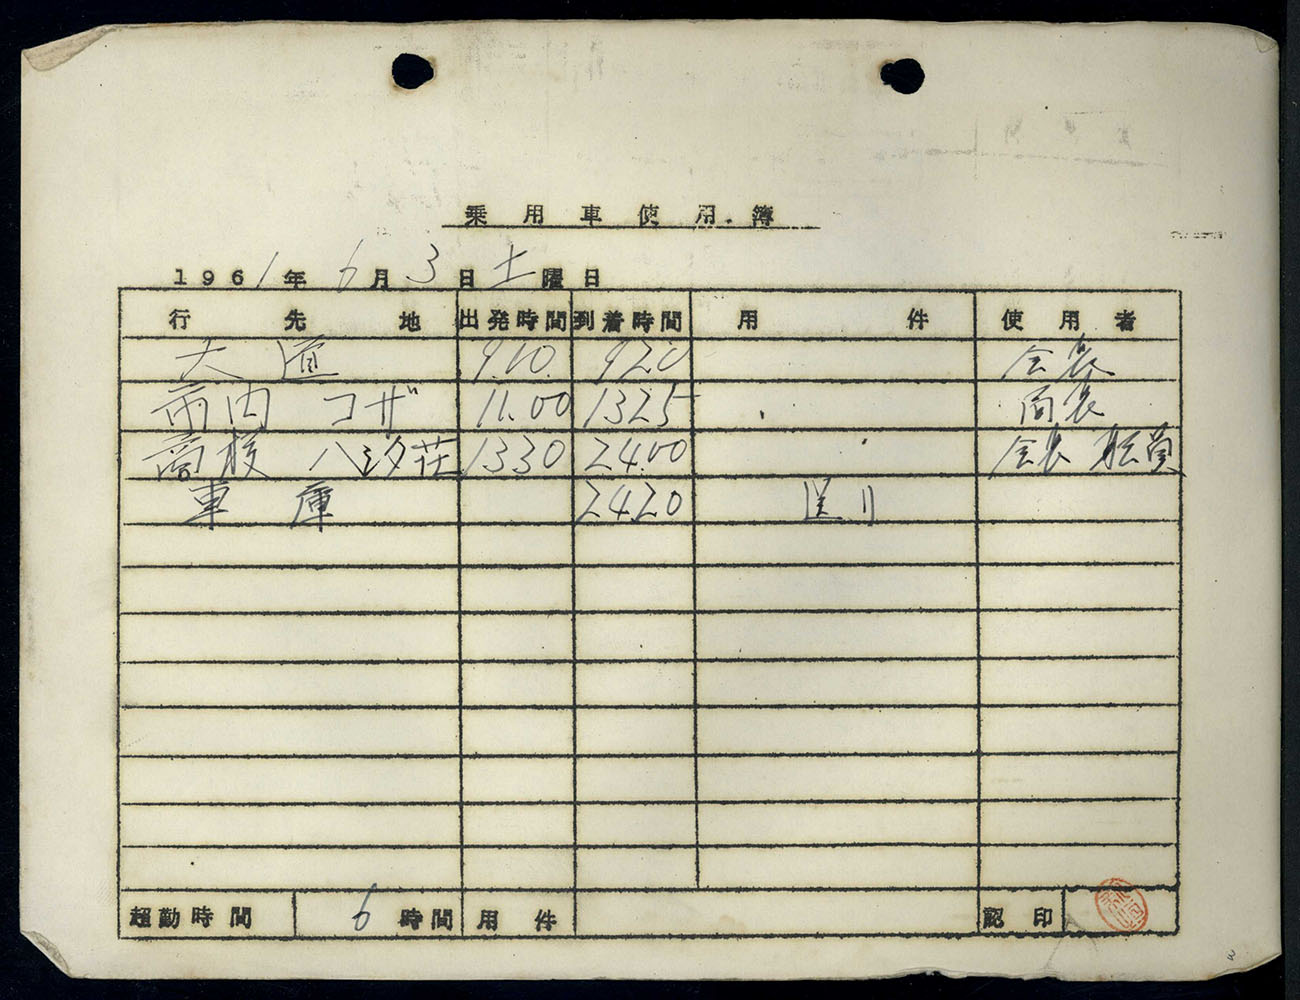 乗用車使用簿
1961年6月3日土曜日
行先地 出発時間 到着時間 用件 使用者
大道 9.10 920 会長
市内 コザ 11.00 1325 同長
商校 八汐荘 1330 2400 会長 職員
車庫 2420 送り
超勤時間 6時間 用件 認印